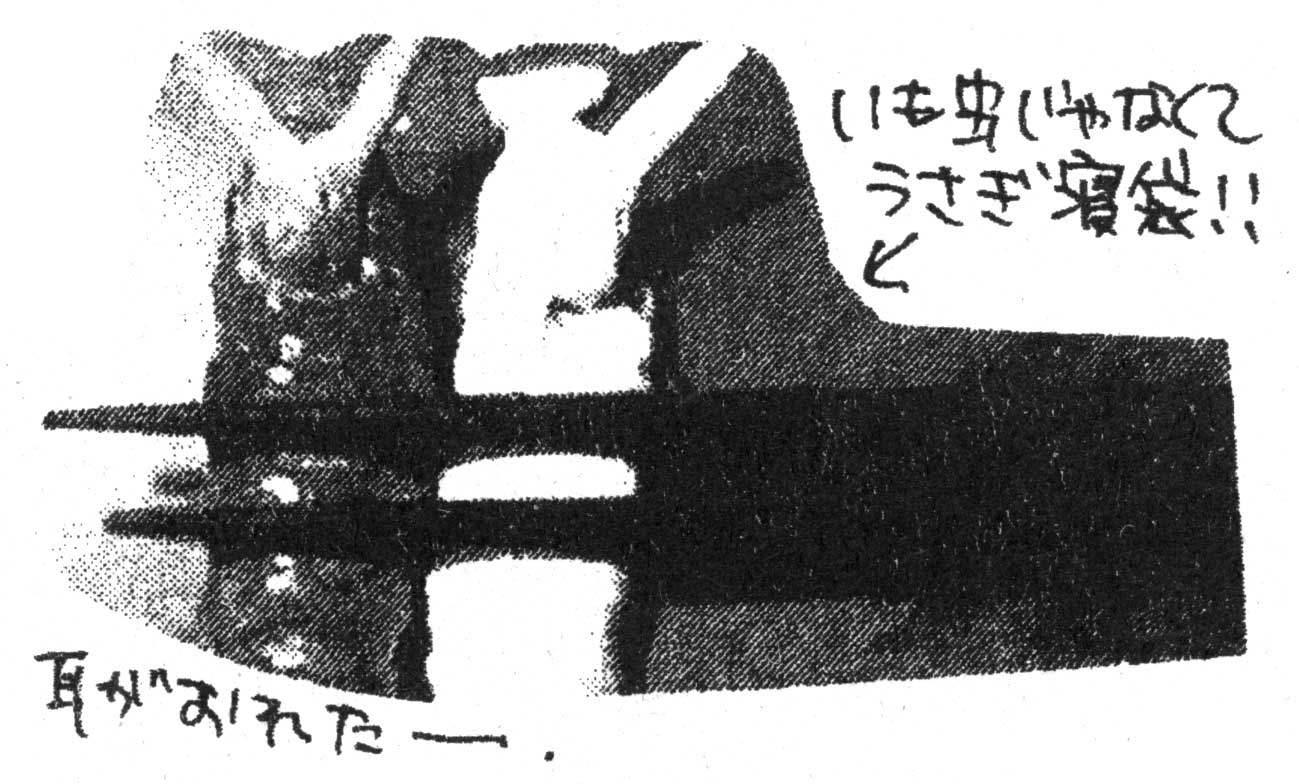 いも虫じゃなくて
うさぎ寝袋!!
耳がおれたー.